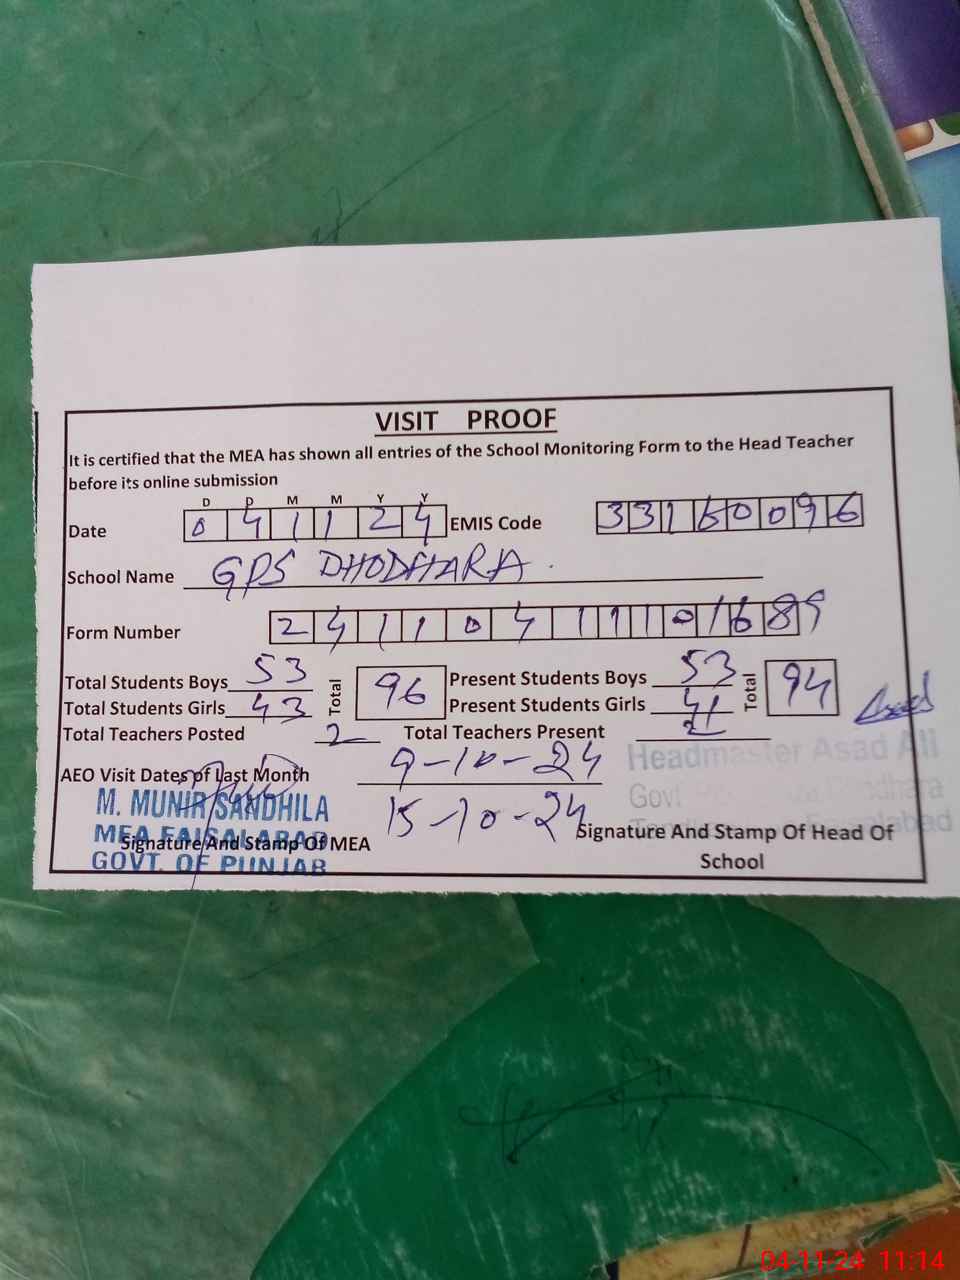 VISIT PROOF
It is certified that the MEA has shown all entries of the School Monitoring Form to the Head Teacher
before its online submission
D D M M Y Y
Date 0 4 1 1 2 4 EMIS Code 3 3 1 6 0 0 9 6
School Name GPS DHODHARA
Form Number 2 4 1 1 0 4 1 1 1 0 1 6 8 9
Total Students Boys 53 Total 96 Present Students Boys 53 Total 94
Total Students Girls 43 Present Students Girls 41
Total Teachers Posted 2 Total Teachers Present 2
Asad
AEO Visit Dates of Last Month 9-10-24
15-10-24
M. MUNIR SANDHILA
MEA FAISALABAD
GOVT. OF PUNJAB
Signature And Stamp Of MEA
Headmaster Asad Ali
Govt
Signature And Stamp Of Head Of
School
04-11-24 11:14